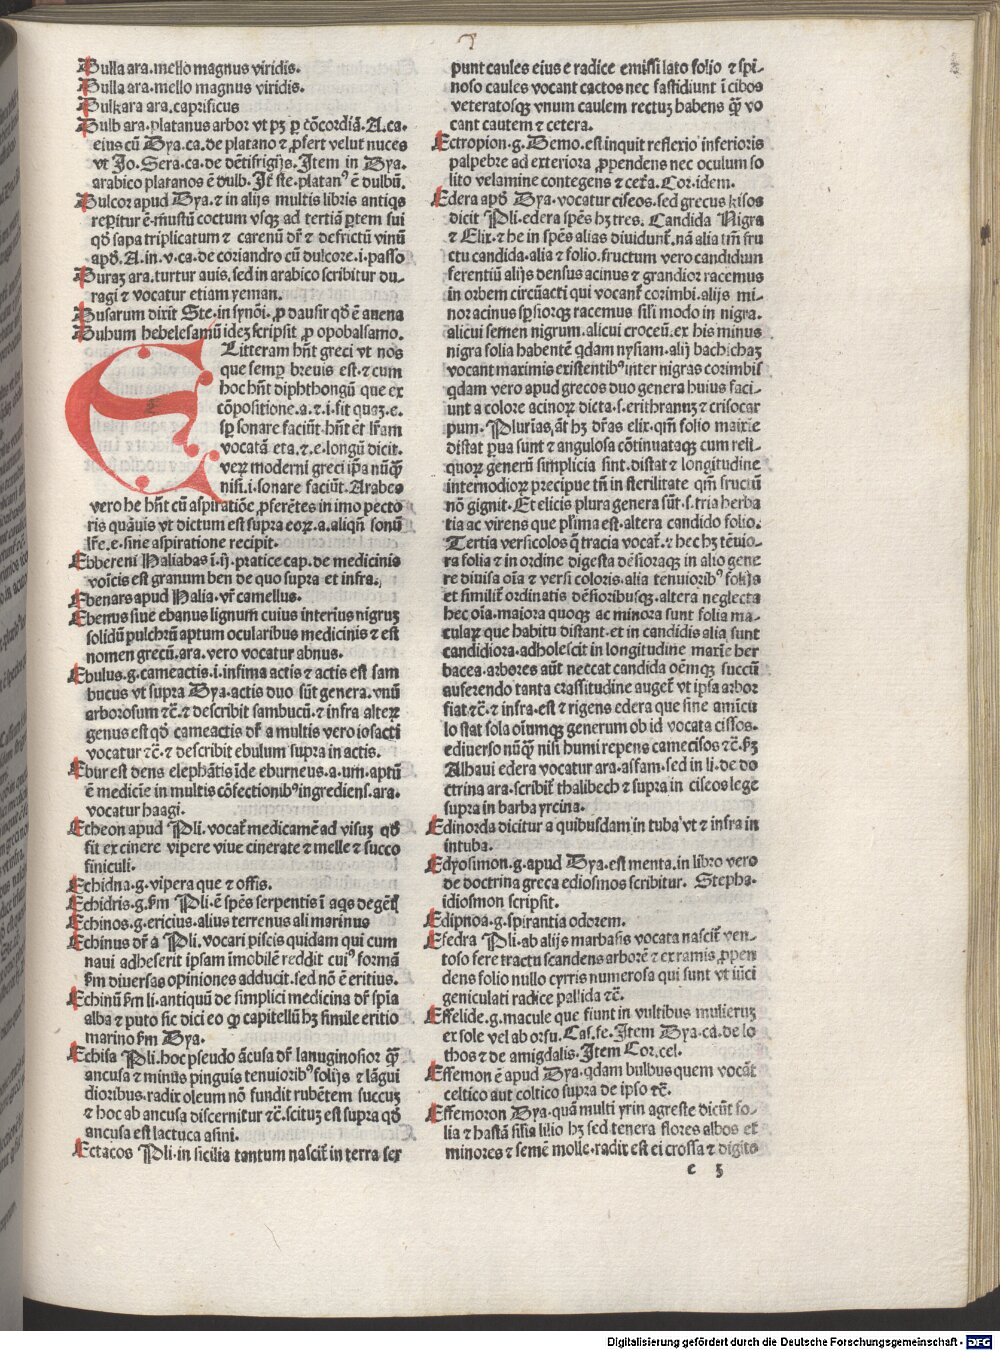 Bulla ara.mello magnus viridis.
Bulla ara.mello magnus viridis.
Bulkara ara.caprificus
Dulb ara.platanus arbor vt pꝫ ꝑ cōcordiā.A.ca.
eius cū Dya.ca.de platano ⁊ ꝓfert velut nuces
vt Jo.Sera.ca.de dētifrigijs.Item in Dya.
arabico platanos ē dulb.Jt̄ ste.platanꝰ ē dulbū.
Dulcor apud Dya.⁊ in alijs multis libris antiqs
reꝑitur ē.mustū coctum vsqꝫ ad tertiā ꝑtem sui
qđ sapa triplicatum ⁊ carenū dr̄ ⁊ defrictū vinū
apđ.A.in.v.ca.de coriandro cū dulcore.i.passo
Duraꝫ ara.turtur auis.sed in arabico scribitur du-
ragi ⁊ vocatur etiam yeman.
Dusarum dixit Ste.in synōi.ꝓ dausir qđ ē auena
Duhum hebelesamū ideꝫ scripsit ꝓ opobalsamo.
E Litteram hn̄t greci vt nos
que semꝑ breuis est.⁊ cum
hoc hn̄t diphthongū que ex
cōpositione.a.⁊.i.sit quaꝫ.e.
sꝑ sonare faciūt.hn̄t et lr̄am
vocatā eta.⁊.e.longū dicit.
veꝝ moderni greci ip̄a nūꝙ̄
nisi.i.sonare faciūt.Arabes
vero he hn̄t cū aspiratiōe ꝓferētes in imo pecto
ris quāuis vt dictum est supra eoꝝ.a.aliqn̄ sonū
lr̄e.e.sine aspiratione recipit.
Ebbereni Haliabas ī.ij.pratice cap.de medicinis
voīcis est granum ben de quo supra et infra.
Ebenars apud Halia.vr̄ camellus.
Ebenus siue ebanus lignum cuius interius nigruꝫ
solidū pulchrū aptum ocularibus medicinis ⁊ est
nomen grecū.ara.vero vocatur abnus.
Ebulus.g.cameactis.i.infima actis ⁊ actis est sam
bucus vt supra Dya.actis duo sūt genera.vnū
arborosum ⁊c̄.⁊ describit sambucū.⁊ infra alteꝝ
genus est qđ cameactis dr̄ a multis vero iosacti
vocatur ⁊c̄.⁊ describit ebulum supra in actis.
Ebur est dens elephātis īde eburneus.a.um.aptū
ē medicīe in multis cōfectionibꝰ ingrediens.ara.
vocatur haagi.
Echeon apud Pli.vocat̄ medicamē ad visuꝫ qđ
fit ex cinere vipere viue cinerate ⁊ melle ⁊ succo
finiculi.
Echidna.g.vipera que ⁊ offis.
Echidris.g.sm̄ Pli.ē spēs serpentis ī aqs degēs
Echinos.g.ericius.alius terrenus ali marinus
Echinus dr̄ a Pli.vocari piscis quidam qui cum
naui adheserit ipsam imobilē reddit cuiꝰ formā
sm̄ diuersas opiniones adducit.sed nō ē eritius.
Echinū sm̄ li.antiquū de simplici medicina dr̄ spīa
alba ⁊ puto sic dici eo ꝙ capitellū hꝫ simile eritio
marino sm̄ Dya.
Echisa Pli.hoc pseudo ācusa dr̄ lanuginosior ꝙ̄
ancusa ⁊ minus pinguis tenuioribꝰ folijs ⁊ lāgui
dioribus.radix oleum nō fundit rubētem succuꝫ
⁊ hoc ab ancusa discernitur ⁊c̄.scituꝫ est supra qđ
ancusa est lactuca asini.
Ectacos Pli.in sicilia tantum nascit̄ in terra ser
punt caules eius e radice emissi lato folio ⁊ spi-
noso caules vocant cactos nec fastidiunt ī cibos
veteratosqꝫ vnum caulem rectuꝫ habens ꝙ̄ vo
cant cautem ⁊ cetera.
Ectropion.g.Demo.est inquit reflexio inferioris
palpebre ad exteriora ꝓpendens nec oculum so
lito velamine contegens ⁊ cet̄a.Cor.idem.
Edera apđ Dya.vocatur ciseos.sed grecus kisos
dicit Pli.edera spēs hꝫ tres.Candida Nigra
⁊ Elix.⁊ he in spēs alias diuidunt̄.nā alia tm̄ fru
ctu candida.alia ⁊ folio.fructum vero candidum
ferentiū alijs densus acinus ⁊ grandior racemus
in orbem circūacti qui vocant̄ corimbi.alijs mi-
nor acinus sꝑsiorqꝫ racemus sīli modo in nigra.
alicui semen nigrum.alicui croceū.ex his minus
nigra folia habentē qdam nysiam.alij bachichaꝫ
vocant maximis existentibꝰ inter nigras corimbis
qdam vero apud grecos duo genera huius faci-
unt a colore acinoꝝ dicta.s.erithranuꝫ ⁊ crisocar
pum.Plurīas āt hꝫ dr̄as elix.qm̄ folio maxīe
distat ꝑua sunt ⁊ angulosa cōtinuataqꝫ cum reli-
quoꝝ generū simplicia sint.distat ⁊ longitudine
internodioꝝ precipue tn̄ in sterilitate qm̄ fructū
nō gignit.Et elicis plura genera sūt.s.tria herba
tia ac virens que pl̄ima est.altera candido folio.
Tertia versicolos q̄ tracia vocat̄.⁊ hec hꝫ tēuio-
ra folia ⁊ in ordine digesta dēsioraqꝫ in alio gene
re diuisa oīa ⁊ versi coloris.alia tenuioribꝰ folijs
et similit̄ ordinatis dēsioribusqꝫ.altera neglecta
hec oīa.maiora quoqꝫ ac minora sunt folia ma-
culaꝝ que habitu distant.et in candidis alia sunt
candidiora.adholescit in longitudine maxīe her
bacea.arbores aūt neccat candida oēmqꝫ succū
auferendo tanta crassitudine auget̄ vt ipsa arbor
fiat ⁊c̄.⁊ infra.est ⁊ rigens edera que sine amīcu
lo stat sola oīumqꝫ generum ob id vocata cissos.
ediuerso nūꝙ̄ nisi humi repens camecisos ⁊c̄.sꝫ
Alhaui edera vocatur ara.assam.sed in li.de do
ctrina ara.scribit̄ thalibech ⁊ supra in ciseos lege
supra in barba yrcina.
Edinorda dicitur a quibusdam in tuba vt ⁊ infra in
intuba.
Edyosimon.g.apud Dya.est menta.in libro vero
de doctrina greca ediosmos scribitur. Stepha.
idiosmon scripsit.
Edipnoa.g.spirantia odorem.
Efedra Pli.ab alijs marbasis vocata nascit̄ ven-
toso fere tractu scandens arborē ⁊ ex ramis ꝓpen
dens folio nullo cyrris numerosa qui sunt vt iūci
geniculati radice pallida ⁊c̄.
Effelide.g.macule que fiunt in vultibus mulieruꝫ
ex sole vel ab orsu.Cas.fe.Item Dya.ca.de lo
thos ⁊ de amigdalis.Item Cor.cel.
Effemon ē apud Dya.qdam bulbus quem vocāt
celtico aut coltico supra de ipso ⁊c̄.
Effemoron Dya.quā multi yrin agreste dicūt fo-
lia ⁊ hastā sīlia lilio hꝫ sed tenera flores albos et
minores ⁊ semē molle.radix est ei crossa ⁊ digito
c 3
Digitalisierung gefördert durch die Deutsche Forschungsgemeinschaft - DFG